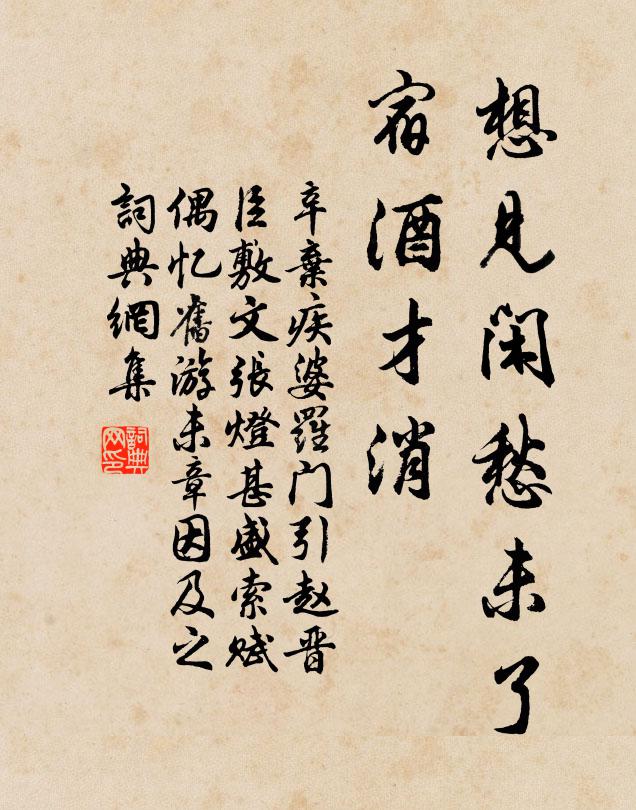 想見閑愁未了
宿酒才消
辛棄疾婆羅门引赵晋
臣敷文張燈甚盛索赋
偶忆舊游末章因及之
詞典網集
詞典网印